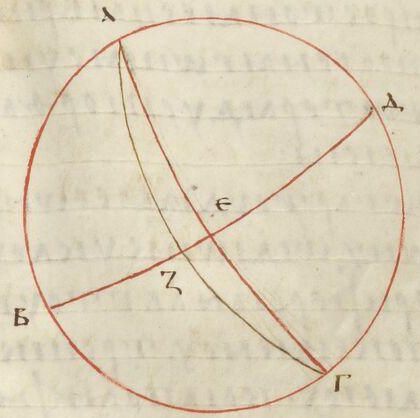 Α
Δ
Ε
Ζ
Β
Γ